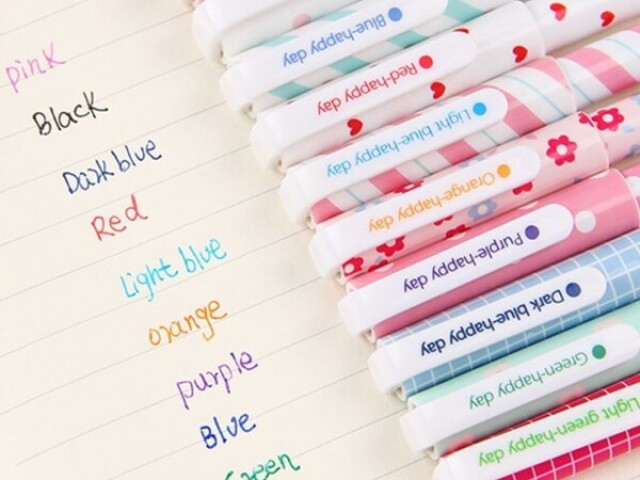 pink
Black
Dark blue
Red
Light blue
orange
purple
Blue
Green
Blue-happy day
Red-happy day
Light blue-happy day
Orange-happy day
Purple-happy day
Dark blue-happy day
Green-happy day
Light green-happy day